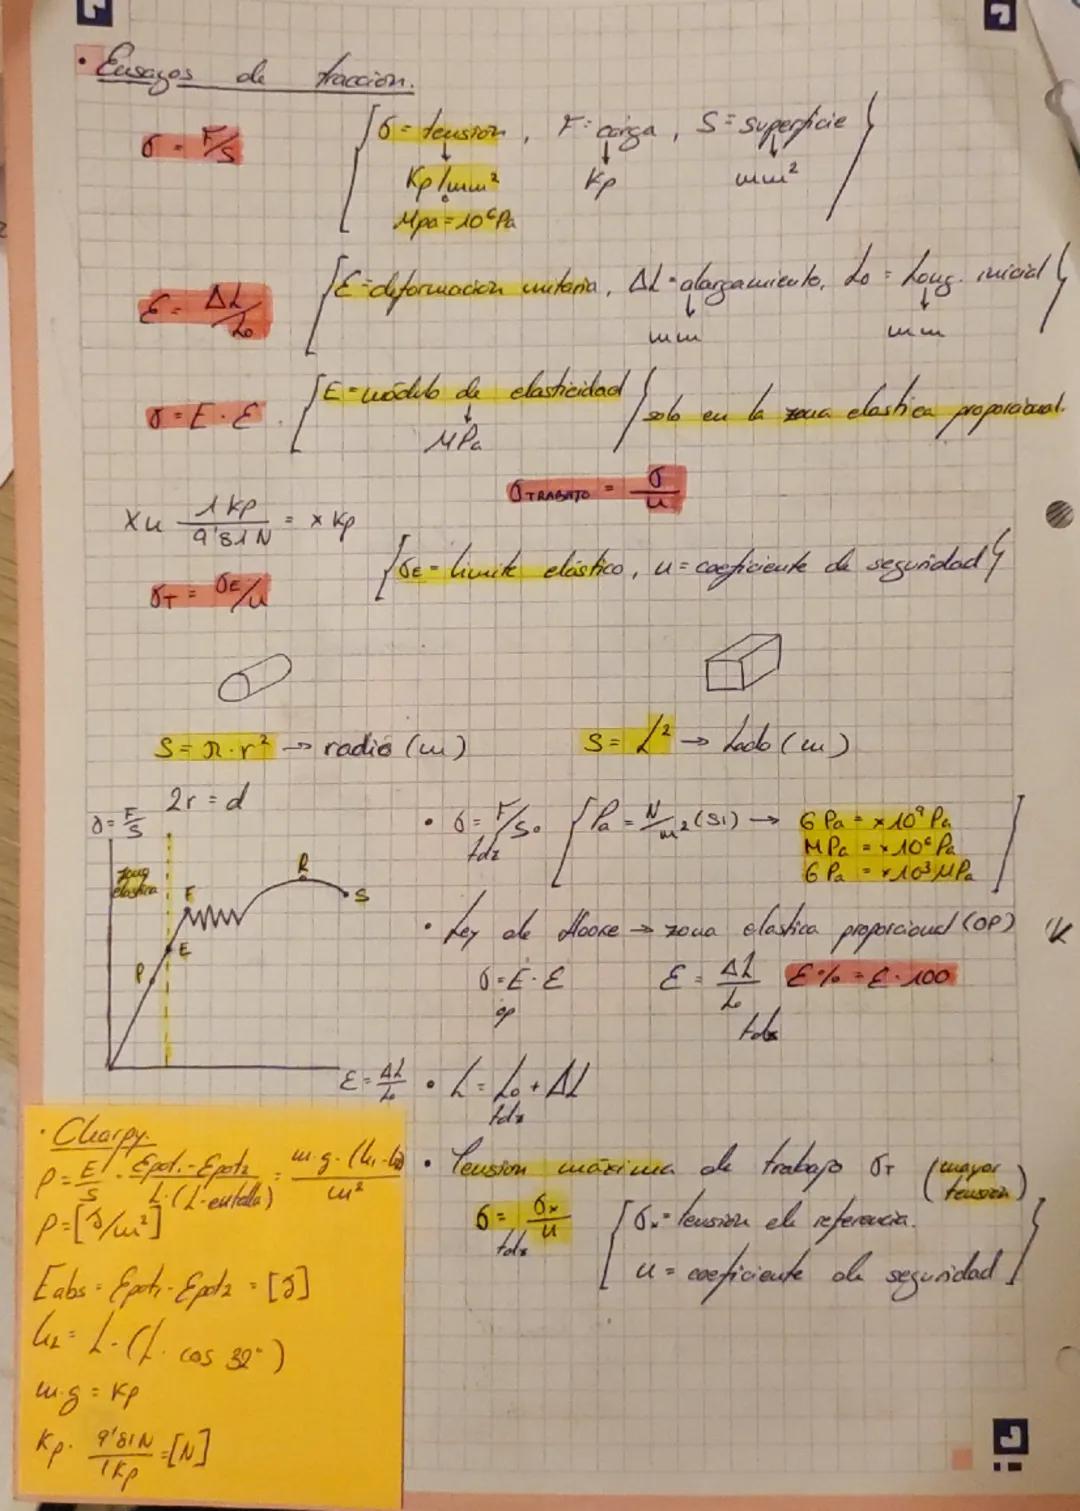 · Ensayos de tracción.
σ = F/S
[σ = tensión, F = carga, S = superficie]
↓ ↓ ↓
Kp/mm² Kp mm²
Mpa = 10⁶Pa
ε = ΔL/Lo
[ε = deformación unitaria, ΔL = alargamiento, Lo = Long. inicial]
↓ ↓
mm mm
σ = E · ε
[E = módulo de elasticidad] solo en la zona elastica proporcional.
↓
MPa
σ TRABAJO = σ/n
XN 1 Kp/9'81 N = x Kp
[σE = limite elástico, n = coeficiente de seguridad]
σT = σE/n
S = π · r² → radio (m)
S = L² → Lado (m)
2r = d
σ = F/S
zona elastica
F
R
S
E
P
ε = ΔL/Lo
• σ = F/So [Pa = N/m² (SI) → G Pa = x10⁹ Pa
tdz
M Pa = x10⁶ Pa
G Pa = x10³ MPa]
• Ley de Hooke → zona elastica proporcional (OP)
K
σ = E · ε ε = ΔL/Lo ε% = ε · 100
op tdz
• L = Lo + ΔL
tdz
• Tension máxima de trabajo σT (mayor tensión)
σ = σx/n [σx = tensión de referencia.
tdz
n = coeficiente de seguridad]
· Charpy.
ρ = E/S = Epot1 - Epot2/L·(L-entalla) = m·g·(h1-h2)/m²
ρ = [J/m²]
Eabs = Epot1 - Epot2 = [J]
h2 = L - (L · cos 32°)
m·g = Kp
Kp · 9'81N/1Kp = [N]